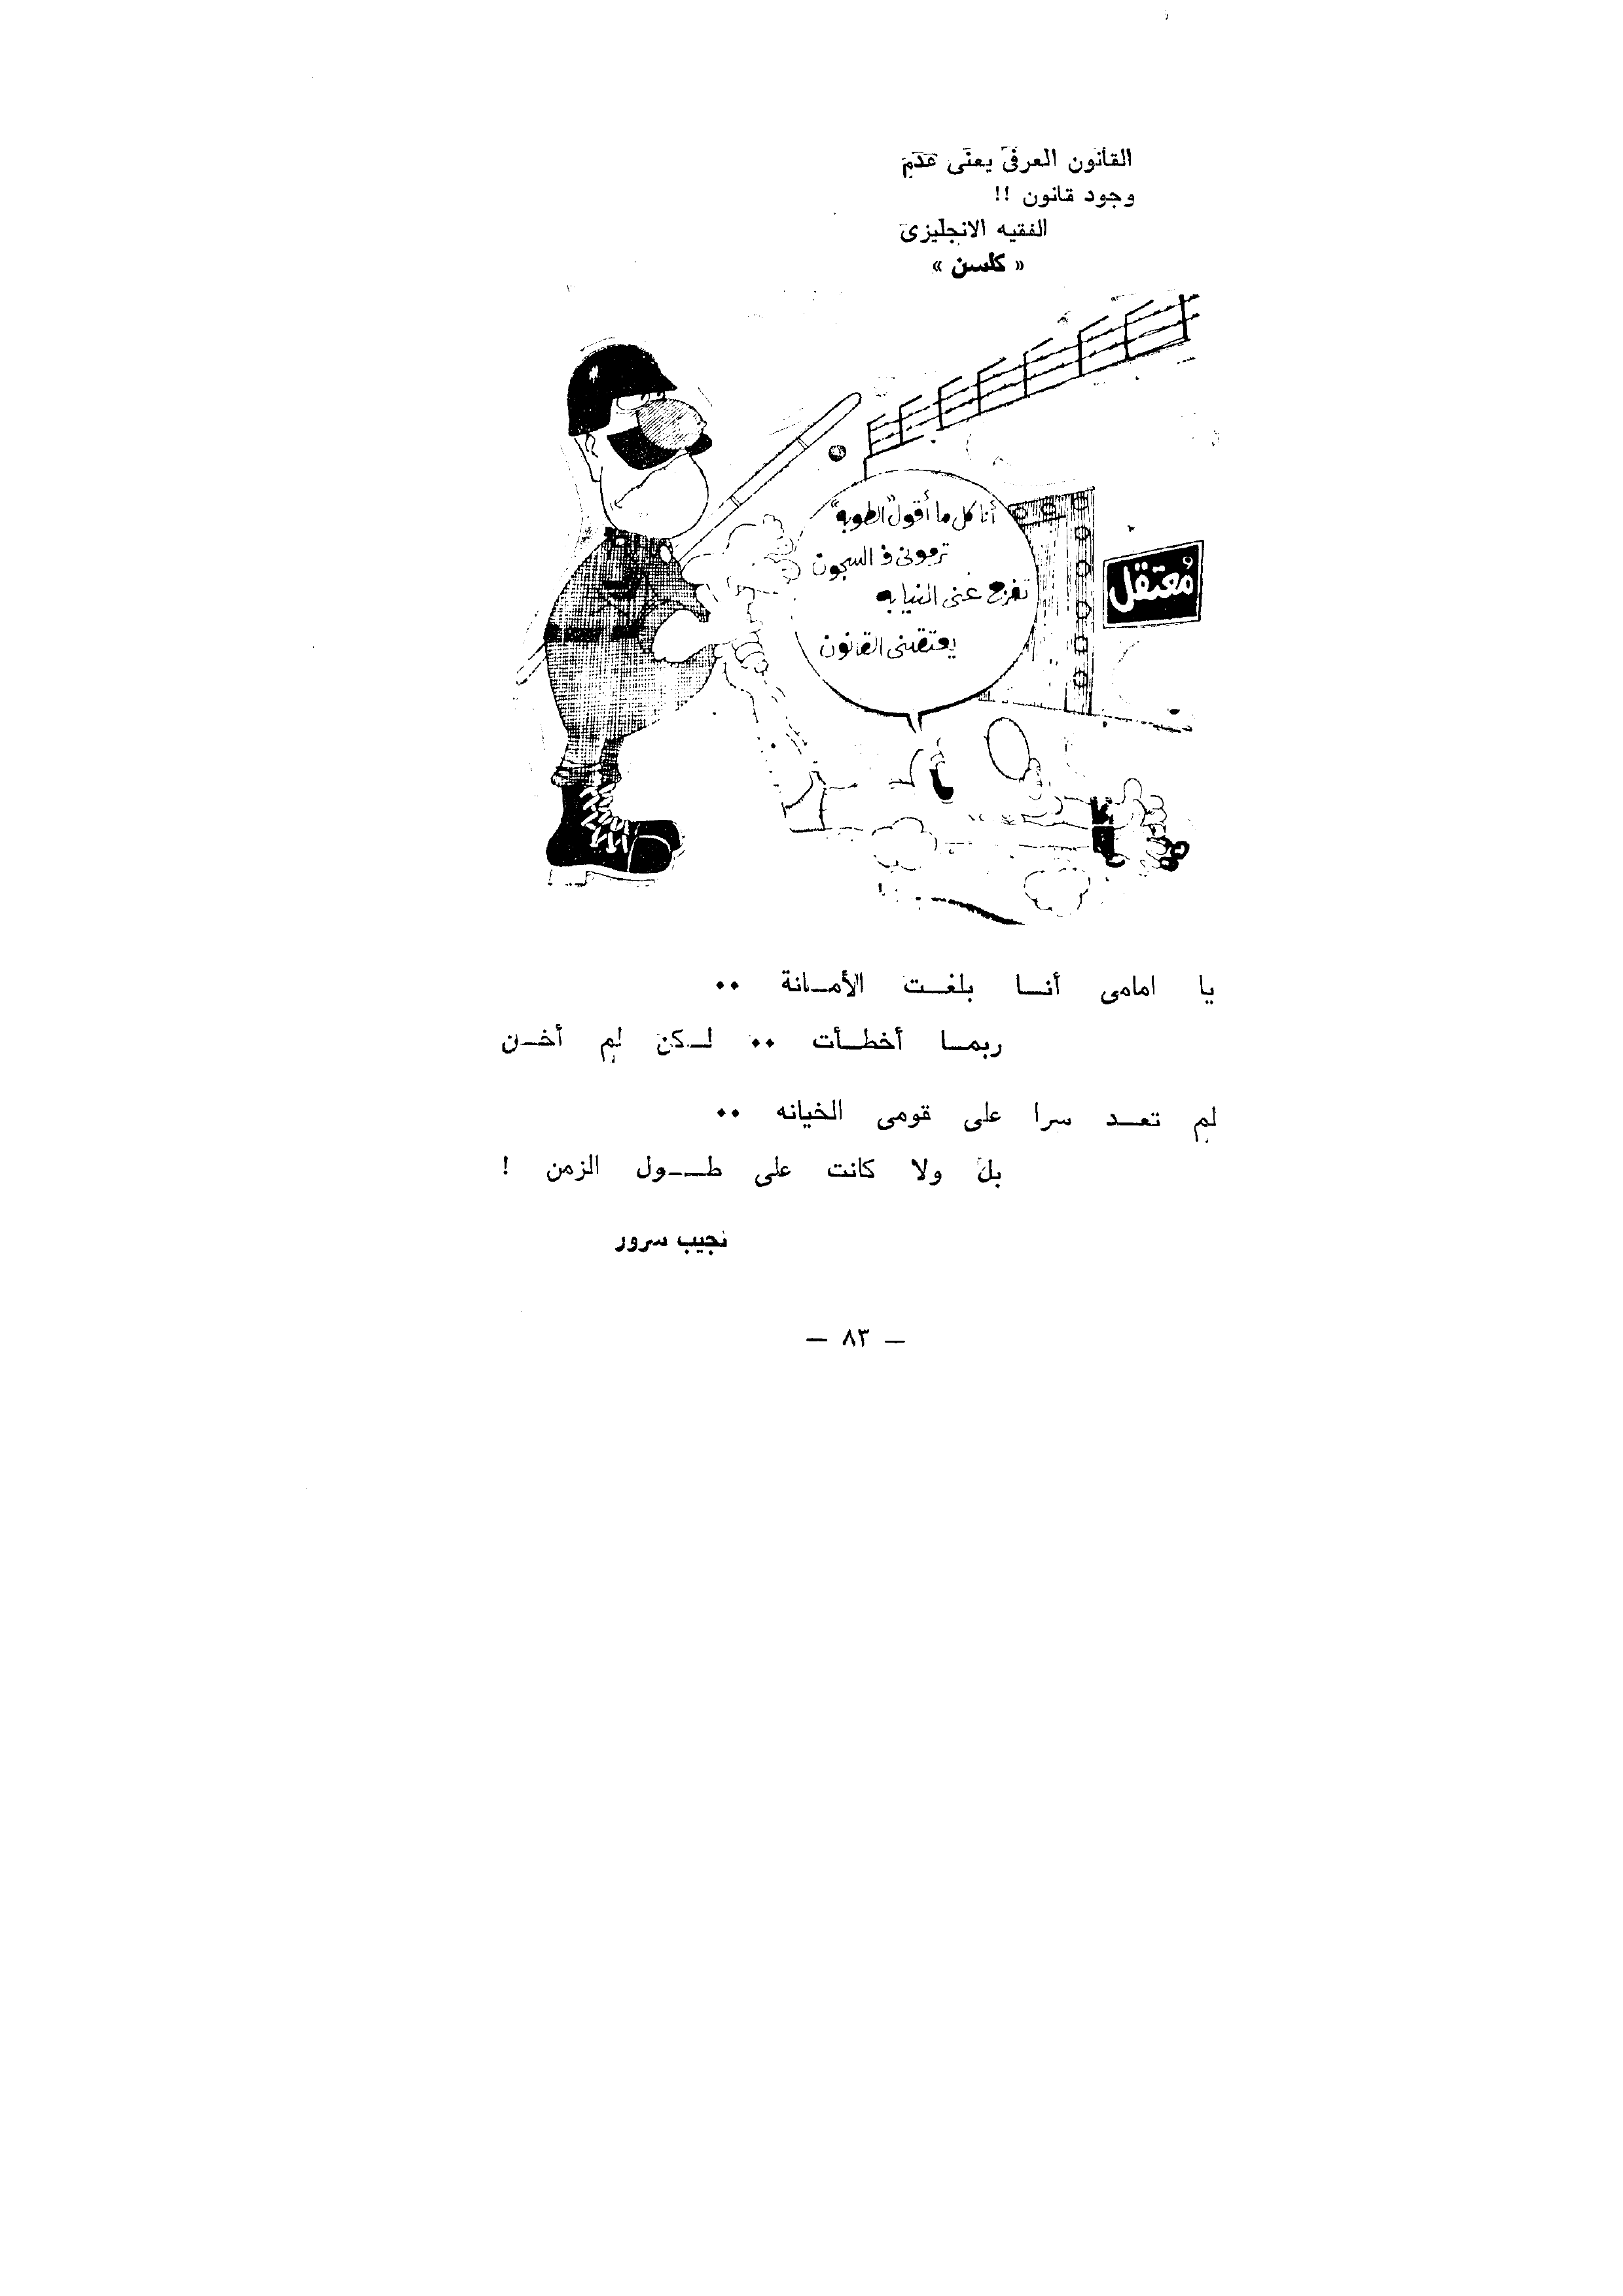 القانون العرفى يعنى عدم
وجود قانون !!
الفقيه الانجليزى
« كلسن »
أنا كل ما أقول "الطوبه"
ترمونى ف السجون
تفرج عنى النيابه
يعتقلنى القانون
مُعتقل
يا امامى أنــا بلغــت الأمــانة ..
ربمــا أخطــأت .. لــكن لم أخــن
لم تعــد سرا على قومى الخيانه ..
بل ولا كانت على طــول الزمن !
نجيب سرور
— ٨٣ —